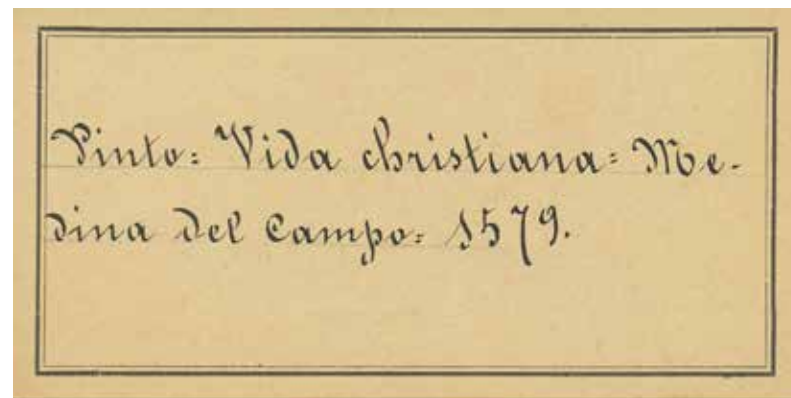 Pinto: Vida christiana= Me-
dina del Campo= 1579.